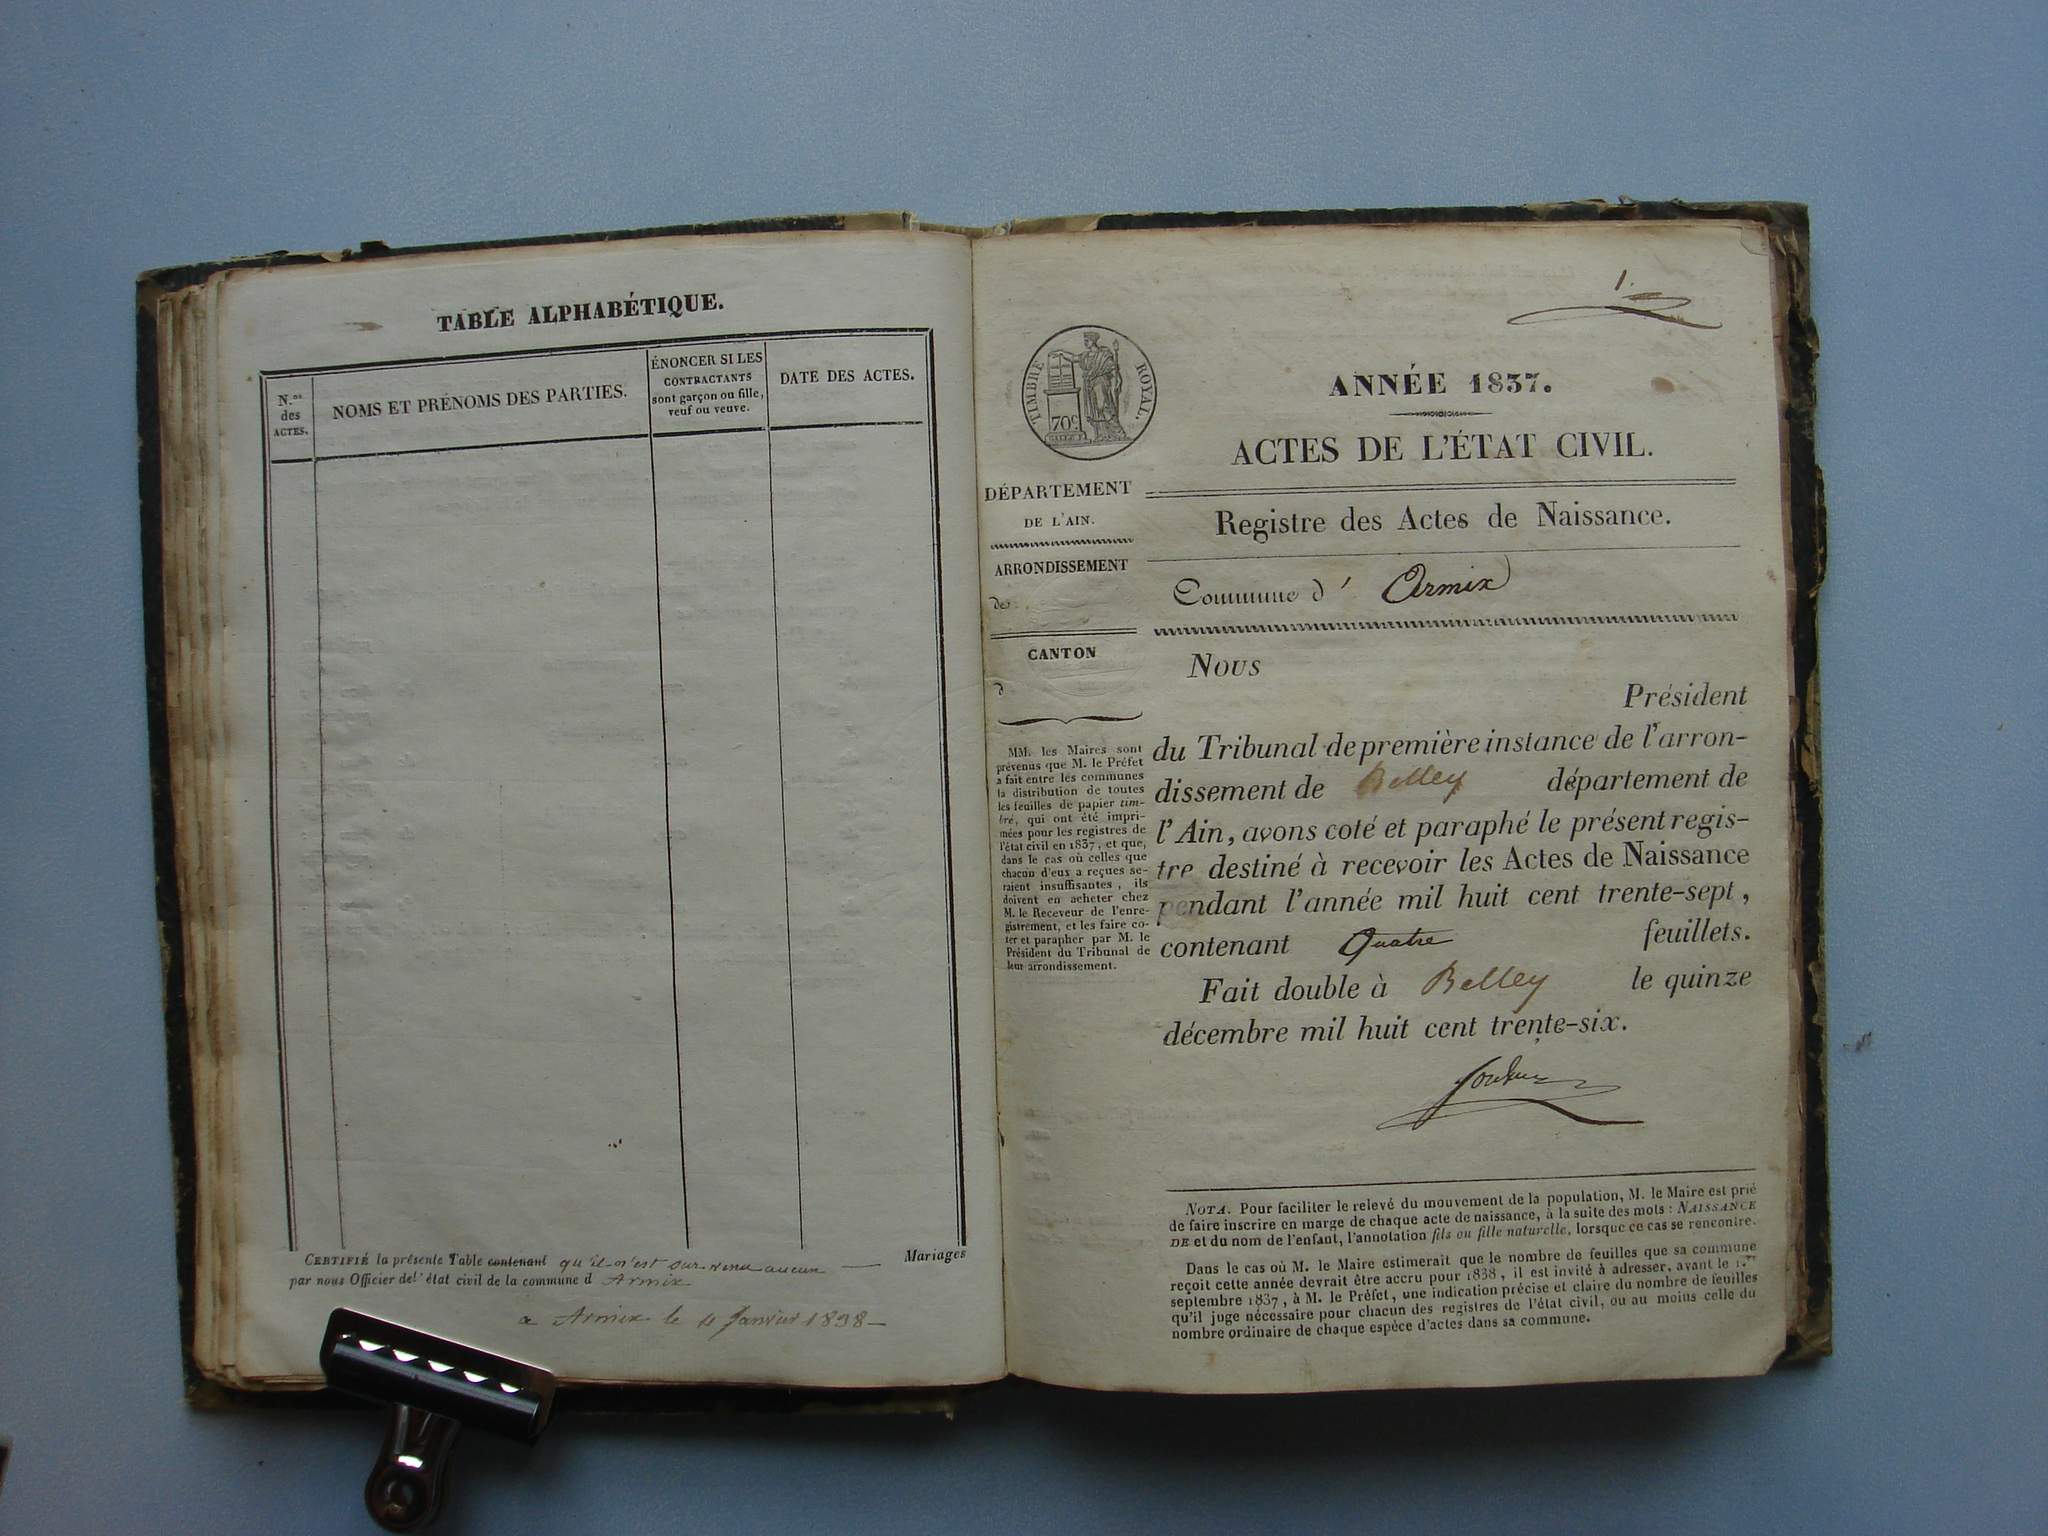 TABLE ALPHABÉTIQUE.
N.os
des
ACTES.
NOMS ET PRÉNOMS DES PARTIES.
ÉNONCER SI LES
CONTRACTANTS
sont garçon ou fille,
veuf ou veuve.
DATE DES ACTES.
CERTIFIÉ la présente Table contenant qu'il n'est survenu aucun — Mariages
par nous Officier de l'état civil de la commune d Armix
a Armix le 4 Janvier 1838 —
1.
TIMBRE ROYAL.
70c
ANNÉE 1837.
ACTES DE L'ÉTAT CIVIL.
DÉPARTEMENT
DE L'AIN.
ARRONDISSEMENT
de
CANTON
d
MM. les Maires sont
prévenus que M. le Préfet
a fait entre les communes
la distribution de toutes
les feuilles de papier tim-
bré, qui ont été impri-
mées pour les registres de
l'état civil en 1837, et que,
dans le cas où celles que
chacun d'eux a reçues se-
raient insuffisantes, ils
doivent en acheter chez
M. le Receveur de l'enre-
gistrement, et les faire co-
ter et parapher par M. le
Président du Tribunal de
leur arrondissement.
Registre des Actes de Naissance.
Commune d' Armix
Nous
Président
du Tribunal de première instance de l'arron-
dissement de Belley département de
l'Ain, avons coté et paraphé le présent regis-
tre destiné à recevoir les Actes de Naissance
pendant l'année mil huit cent trente-sept,
contenant Quatre feuillets.
Fait double à Belley le quinze
décembre mil huit cent trente-six.
NOTA. Pour faciliter le relevé du mouvement de la population, M. le Maire est prié
de faire inscrire en marge de chaque acte de naissance, à la suite des mots : NAISSANCE
DE et du nom de l'enfant, l'annotation fils ou fille naturelle, lorsque ce cas se rencontre.
Dans le cas où M. le Maire estimerait que le nombre de feuilles que sa commune
reçoit cette année devrait être accru pour 1838, il est invité à adresser, avant le 1.er
septembre 1837, à M. le Préfet, une indication précise et claire du nombre de feuilles
qu'il juge nécessaire pour chacun des registres de l'état civil, ou au moins celle du
nombre ordinaire de chaque espèce d'actes dans sa commune.